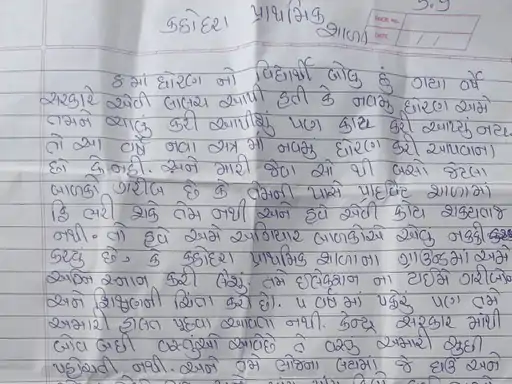 કકોદરા પ્રાથમિક
શાળા
૮ માં ધોરણ નો વિદ્યાર્થી બોલું છું ગયા વર્ષે
સરકારે એવી લાલચ આપી હતી કે નવમું ધોરણ અમે
તમને ચાલું કરી આપીશું પણ કાંય કરી આપ્યું નય
તો આ વર્ષે નવા સત્ર માં નવમું ધોરણ કરી આપવાના
છો કે નહી. અને મારી જેવા ઓ થી બસો જેટલા
બાળકો ગરીબ છે કે તેમની પાસે પ્રાઈવેટ શાળામાં
ફિ ભરી શકે તેમ નથી અને હવે એવી કોય શક્યતાજ
નથી. તો હવે અમે બાળકોએ એવુ નક્કી
કરયુ છે, કે કકોદરા પ્રાથમિક શાળાના ગ્રાઉન્ડમાં અમે
સ્નાન કરી લેશું. તમે ઈલેકશન ના ટાઈમે ગરીબોની
અને ચિંતા કરો છો. ૫ વર્ષ માં પણ તમે
અમારી હાલત પુછવા આવતા નથી. કેન્દ્ર સરકાર માંથી
બધી વસ્તુઓ આવેછે તે વસ્તુ અમારી સુધી
પહોચતી નથી. અને તમે ભોજના જે અને